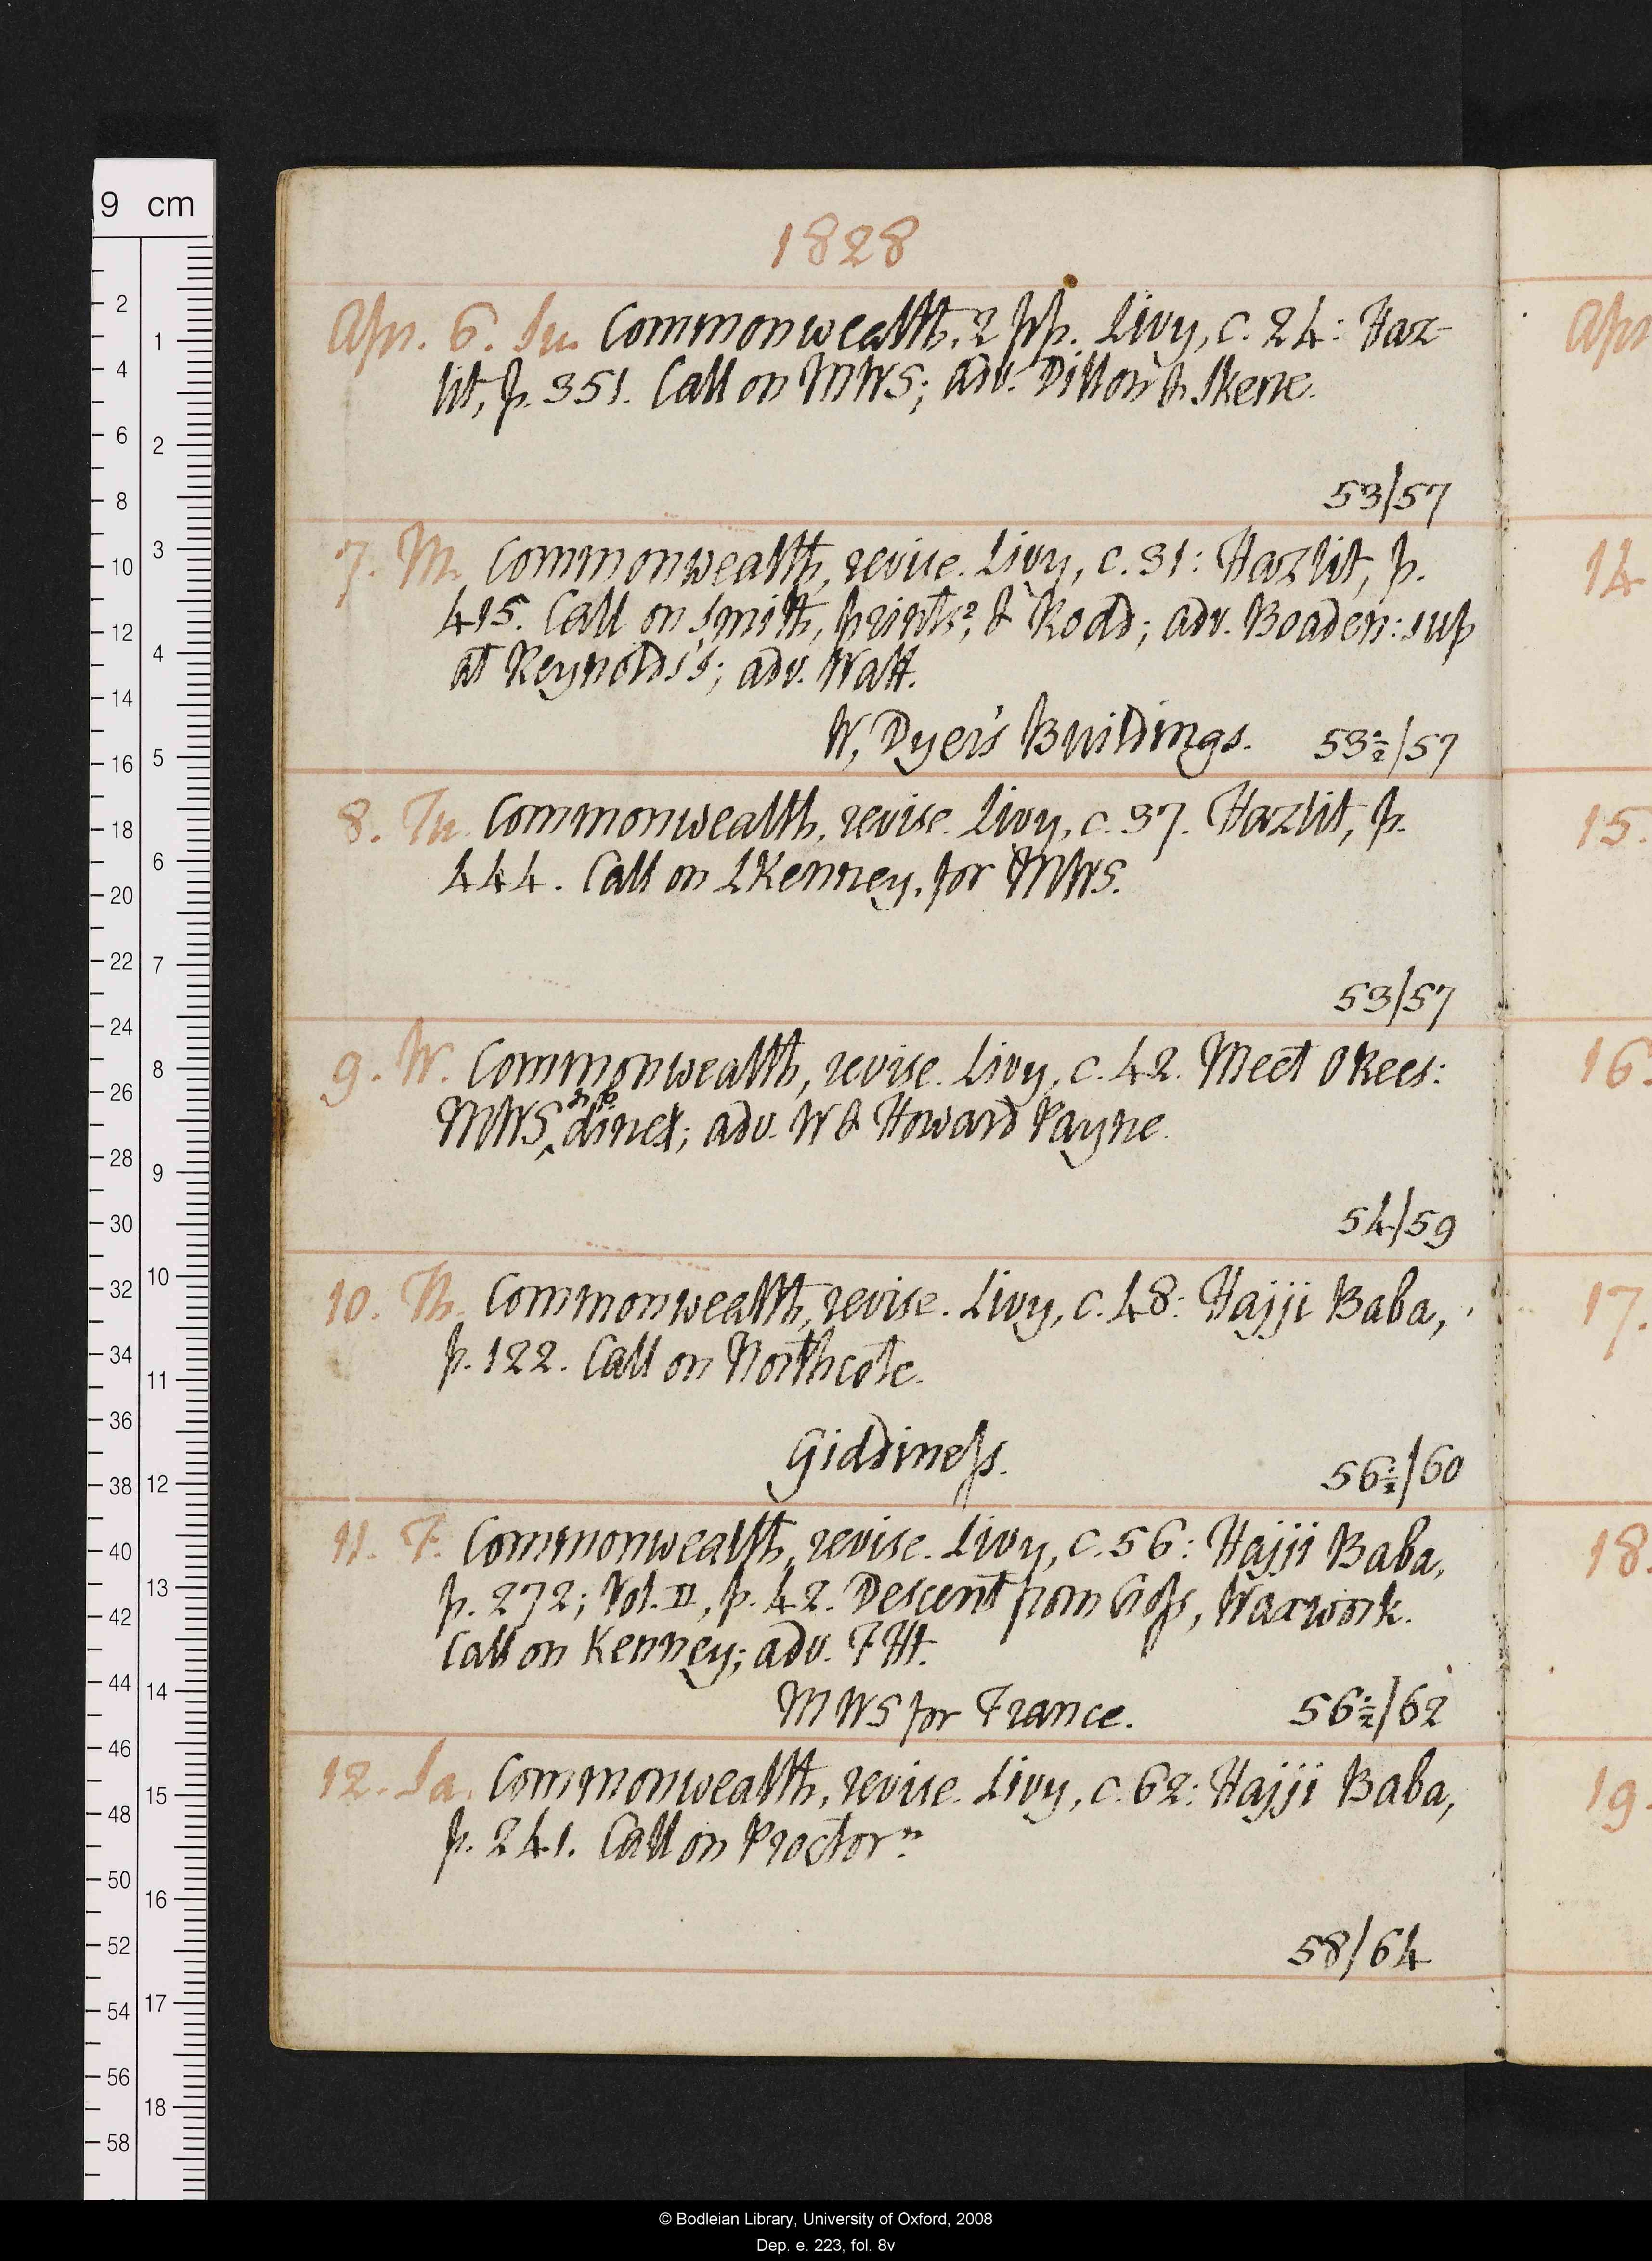 9 cm
1828
Apr. 6. Su. Commonwealth, 2 pp. Livy, c. 24: Haz-
lit, p. 351. Call on MWS; adv. Dillon & Skene.
53/57
7. M. Commonwealth, revise. Livy, c. 31: Hazlit, p.
415. Call on Smith, printsr, & Road; adv. Boaden: sup
at Reynolds's; adv. Watt.
W, Dyer's Buildings. 53½/57
8. Tu. Commonwealth, revise. Livy, c. 37. Hazlit, p.
444. Call on LKenney, for MWS.
53/57
9. W. Commonwealth, revise. Livy, c. 42. Meet ORees:
MWS dines; adv. W & Howard Payne.
54/59
10. Th. Commonwealth, revise. Livy, c. 48: Hajji Baba,
p. 122. Call on Northcote.
Giddiness.
56½/60
11. F. Commonwealth, revise. Livy, c. 56: Hajji Baba,
p. 272; Vol. II, p. 42. Descent from Cross, Waxwork.
Call on Kenney; adv. FHt.
MWS for France. 56½/62
12. Sa. Commonwealth, revise. Livy, c. 62: Hajji Baba,
p. 241. Call on Proctor n.
58/64
Apr
14
15.
16.
17.
18.
19.
© Bodleian Library, University of Oxford, 2008
Dep. e. 223, fol. 8v